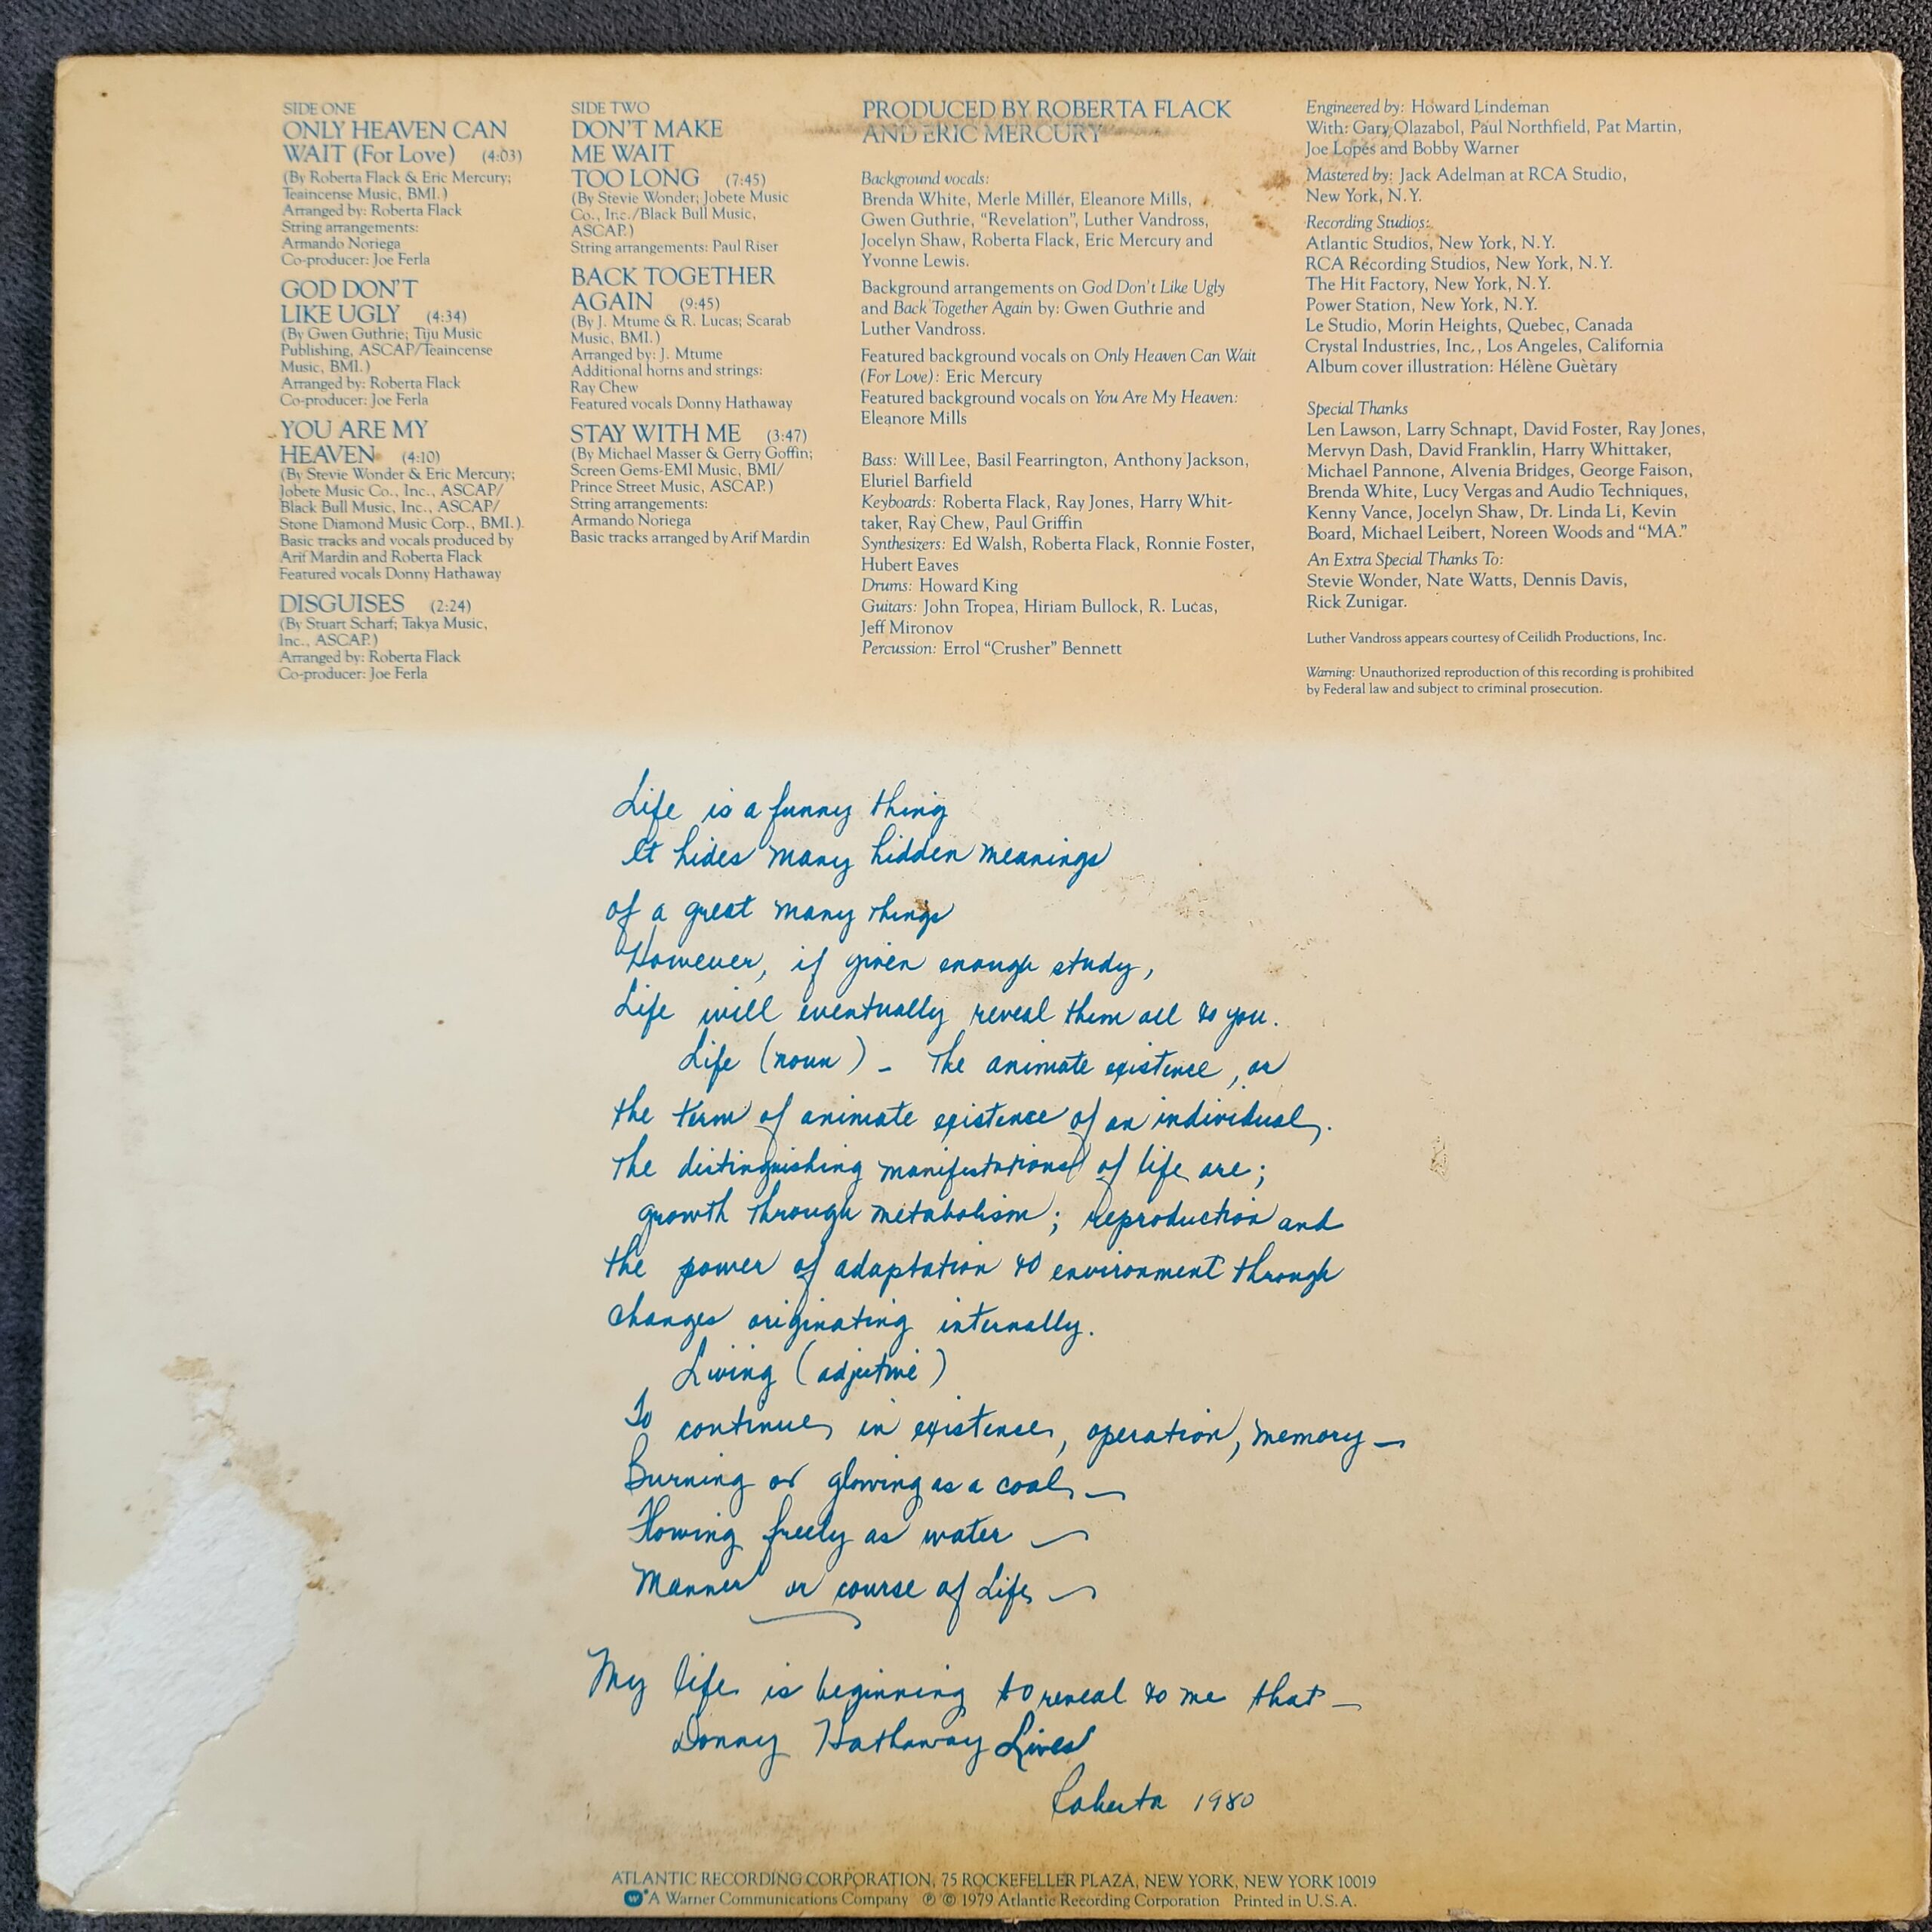 SIDE ONE
ONLY HEAVEN CAN
WAIT (For Love) (4:03)
(By Roberta Flack & Eric Mercury;
Teaincense Music, BMI.)
Arranged by: Roberta Flack
String arrangements:
Armando Noriega
Co-producer: Joe Ferla
GOD DON'T
LIKE UGLY (4:34)
(By Gwen Guthrie; Tiju Music
Publishing, ASCAP/Teaincense
Music, BMI.)
Arranged by: Roberta Flack
Co-producer: Joe Ferla
YOU ARE MY
HEAVEN (4:10)
(By Stevie Wonder & Eric Mercury;
Jobete Music Co., Inc., ASCAP/
Black Bull Music, Inc., ASCAP/
Stone Diamond Music Corp., BMI.)
Basic tracks and vocals produced by
Arif Mardin and Roberta Flack
Featured vocals Donny Hathaway
DISGUISES (2:24)
(By Stuart Scharf; Takya Music,
Inc., ASCAP.)
Arranged by: Roberta Flack
Co-producer: Joe Ferla
SIDE TWO
DON'T MAKE
ME WAIT
TOO LONG (7:45)
(By Stevie Wonder; Jobete Music
Co., Inc./Black Bull Music,
ASCAP.)
String arrangements: Paul Riser
BACK TOGETHER
AGAIN (9:45)
(By J. Mtume & R. Lucas; Scarab
Music, BMI.)
Arranged by: J. Mtume
Additional horns and strings:
Ray Chew
Featured vocals Donny Hathaway
STAY WITH ME (3:47)
(By Michael Masser & Gerry Goffin;
Screen Gems-EMI Music, BMI/
Prince Street Music, ASCAP.)
String arrangements:
Armando Noriega
Basic tracks arranged by Arif Mardin
PRODUCED BY ROBERTA FLACK
AND ERIC MERCURY
Background vocals:
Brenda White, Merle Miller, Eleanore Mills,
Gwen Guthrie, "Revelation", Luther Vandross,
Jocelyn Shaw, Roberta Flack, Eric Mercury and
Yvonne Lewis.
Background arrangements on God Don't Like Ugly
and Back Together Again by: Gwen Guthrie and
Luther Vandross.
Featured background vocals on Only Heaven Can Wait
(For Love): Eric Mercury
Featured background vocals on You Are My Heaven:
Eleanore Mills
Bass: Will Lee, Basil Fearrington, Anthony Jackson,
Eluriel Barfield
Keyboards: Roberta Flack, Ray Jones, Harry Whit-
taker, Ray Chew, Paul Griffin
Synthesizers: Ed Walsh, Roberta Flack, Ronnie Foster,
Hubert Eaves
Drums: Howard King
Guitars: John Tropea, Hiriam Bullock, R. Lucas,
Jeff Mironov
Percussion: Errol "Crusher" Bennett
Engineered by: Howard Lindeman
With: Gary Olazabol, Paul Northfield, Pat Martin,
Joe Lopes and Bobby Warner
Mastered by: Jack Adelman at RCA Studio,
New York, N.Y.
Recording Studios:
Atlantic Studios, New York, N.Y.
RCA Recording Studios, New York, N.Y.
The Hit Factory, New York, N.Y.
Power Station, New York, N.Y.
Le Studio, Morin Heights, Quebec, Canada
Crystal Industries, Inc., Los Angeles, California
Album cover illustration: Hélène Guètary
Special Thanks
Len Lawson, Larry Schnapt, David Foster, Ray Jones,
Mervyn Dash, David Franklin, Harry Whittaker,
Michael Pannone, Alvenia Bridges, George Faison,
Brenda White, Lucy Vergas and Audio Techniques,
Kenny Vance, Jocelyn Shaw, Dr. Linda Li, Kevin
Board, Michael Leibert, Noreen Woods and "MA."
An Extra Special Thanks To:
Stevie Wonder, Nate Watts, Dennis Davis,
Rick Zunigar.
Luther Vandross appears courtesy of Ceilidh Productions, Inc.
Warning: Unauthorized reproduction of this recording is prohibited
by Federal law and subject to criminal prosecution.
Life is a funny thing
It hides many hidden meanings
of a great many things
However, if given enough study,
Life will eventually reveal them all to you.
Life (noun) - The animate existence, or
the term of animate existence of an individual.
The distinguishing manifestations of life are;
growth through metabolism; reproduction and
the power of adaptation to environment through
changes originating internally.
Living (adjective)
To continue in existence, operation, memory —
Burning or glowing as a coal —
Flowing freely as water —
Manner or course of Life —
My life is beginning to reveal to me that —
Donny Hathaway Lives
Roberta 1980
ATLANTIC RECORDING CORPORATION, 75 ROCKEFELLER PLAZA, NEW YORK, NEW YORK 10019
W A Warner Communications Company ℗ © 1979 Atlantic Recording Corporation Printed in U.S.A.